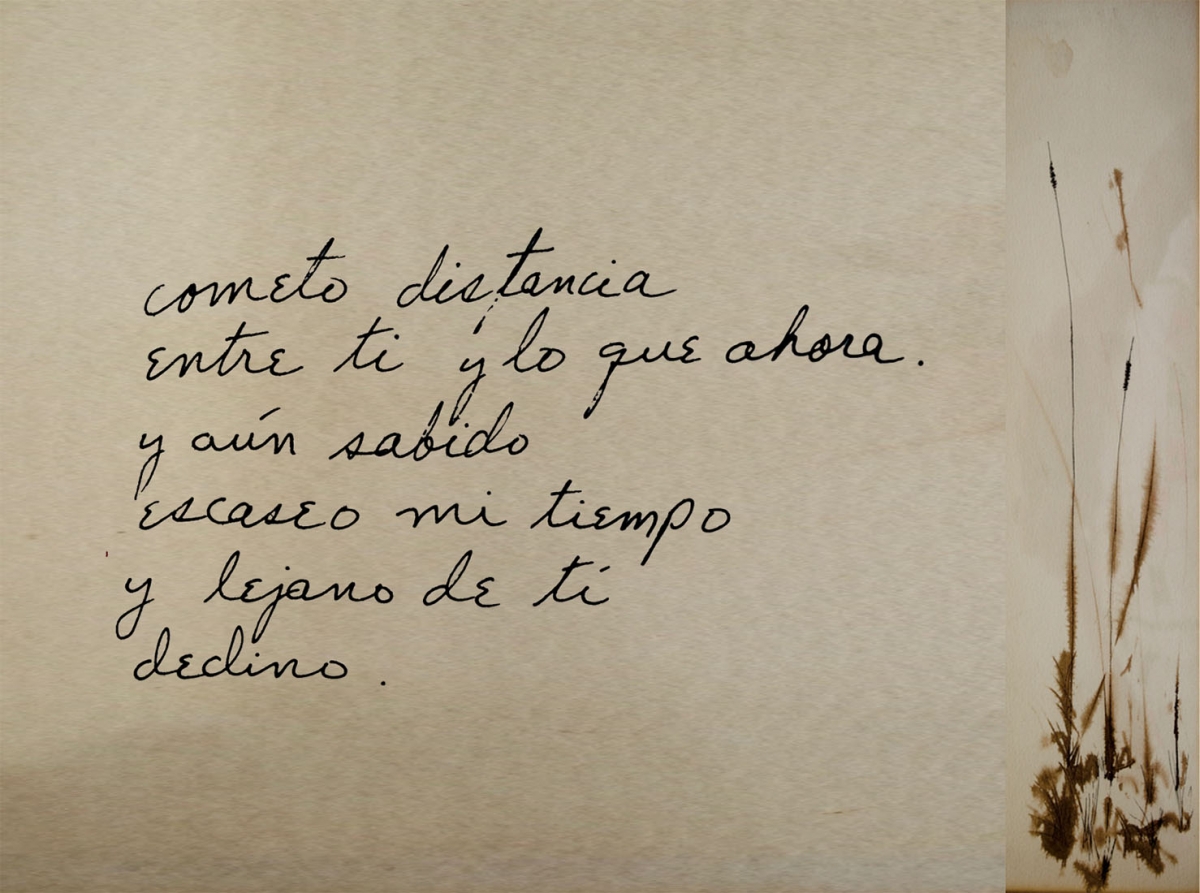 cometo distancia
entre ti y lo que ahora.
y aún sabido
escaseo mi tiempo
y lejano de tí
declino.